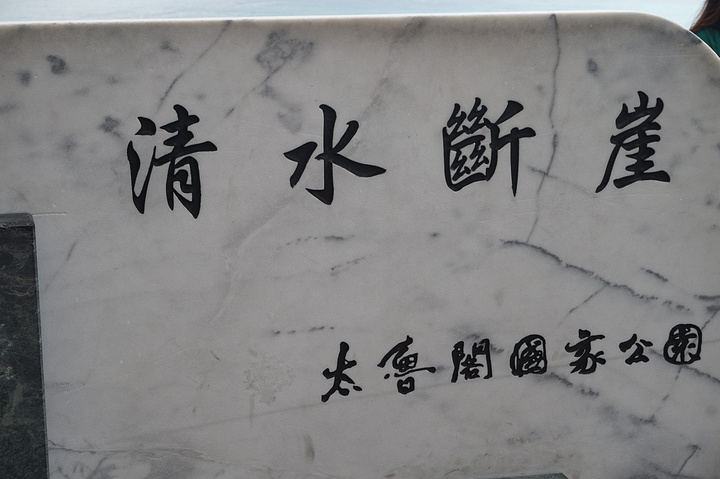 清水斷崖
太魯閣國家公園